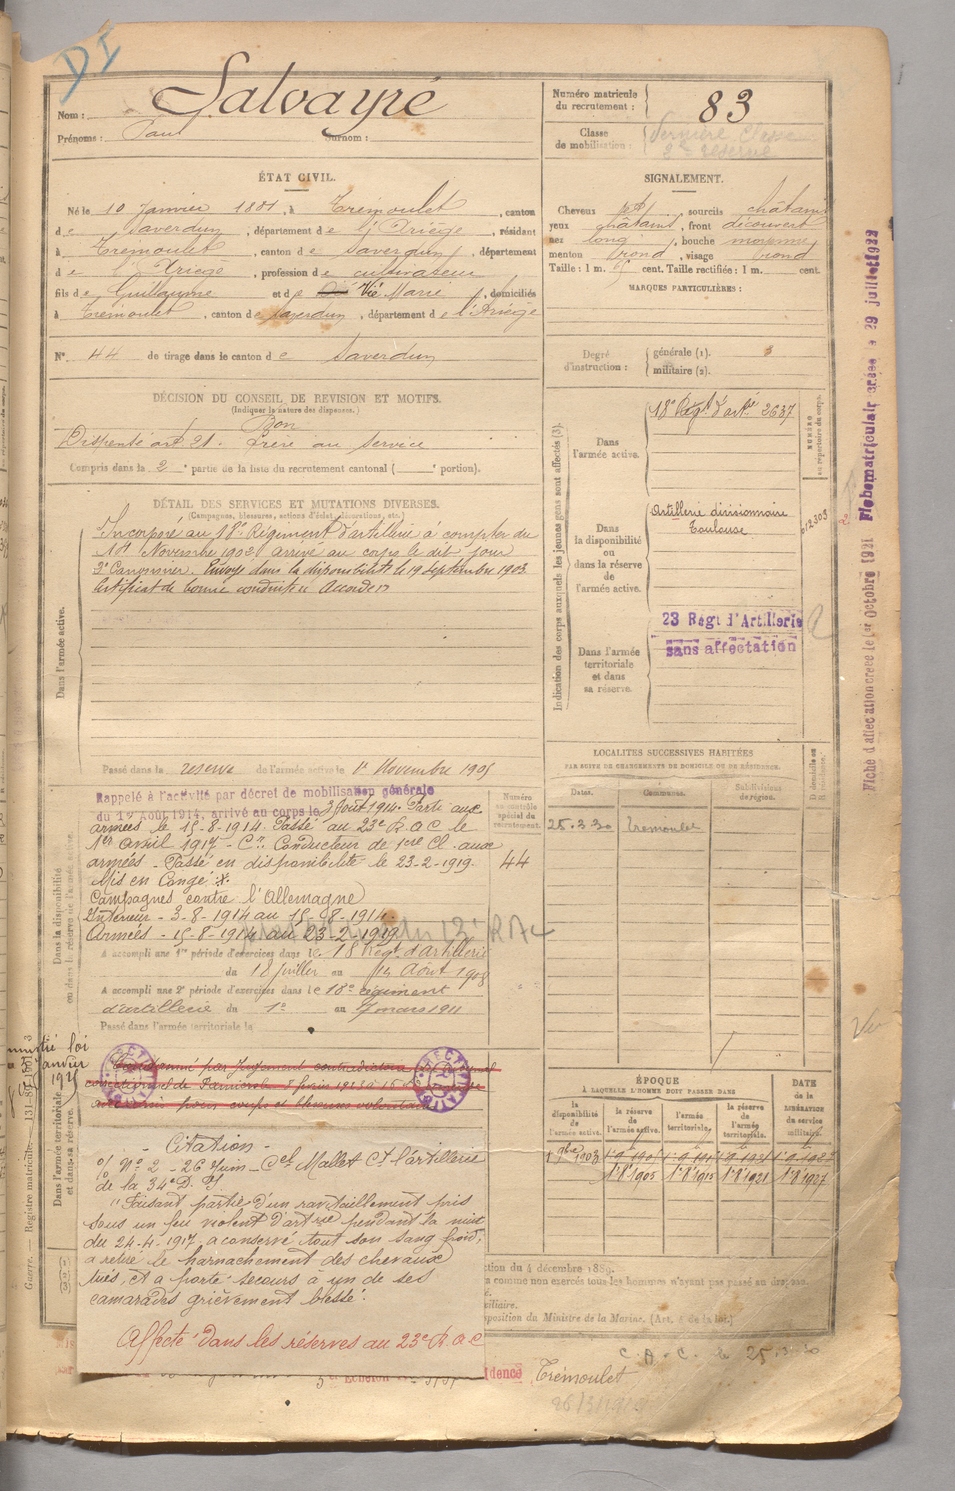 DI
Nom : Salvayré
Prénoms : Paul Surnom :
Numéro matricule du recrutement : 83
Classe de mobilisation : dernière Classe
2e réserve
ÉTAT CIVIL.
Né le 10 Janvier 1881, à Trémoulet, canton
de Saverdun, département de l'Ariège, résidant
à Trémoulet, canton de Saverdun, département
de l'Ariège, profession de cultivateur
fils de Guillaume et de Vié Marie, domiciliés
à Trémoulet, canton de Saverdun, département de l'Ariège
N° 44 de tirage dans le canton de Saverdun
SIGNALEMENT.
Cheveux sourcils châtains
yeux châtains, front découvert
nez long, bouche moyenne
menton rond, visage rond
Taille : 1 m. cent. Taille rectifiée : 1 m. cent.
MARQUES PARTICULIÈRES :
Degré d'instruction : générale (1). 3
militaire (2).
DÉCISION DU CONSEIL DE REVISION ET MOTIFS.
(Indiquer la nature des dispenses.)
Bon
Dispensé art. 21. Frère au service
Compris dans la 2e partie de la liste du recrutement cantonal ( portion).
DÉTAIL DES SERVICES ET MUTATIONS DIVERSES.
(Campagnes, blessures, actions d'éclat, décorations, etc.)
Dans l'armée active.
Incorporé au 18e Régiment d'artillerie à compter du
Novembre 1902 arrivé au corps le dit jour
2e Canonnier. Envoyé dans la disponibilité le 19 septembre 1903.
Certificat de bonne conduite Accordé
Passé dans la réserve de l'armée active le 1er Novembre 1905
Indication des corps auxquels les jeunes gens sont affectés (3).
NUMÉRO au répertoire du corps.
Dans l'armée active.
18e Régt d'artie 2637
Dans la disponibilité ou dans la réserve de l'armée active.
Artillerie divisionnaire
Toulouse
012303
Dans l'armée territoriale et dans sa réserve.
23 Régt d'Artillerie
sans affectation
Fiche d'affectation créée le 1er Octobre 1921 Fiche matriculair créée le 29 juillet 1922
Dans la disponibilité ou dans la réserve de l'armée active
Rappelé à l'activité par décret de mobilisation générale
du 1er Août 1914, arrivé au corps le 3 Août 1914. Parti aux
armées le 15-8-1914. Passé au 23e R.A.C le
1er Avril 1917 - Cr Conducteur de 1ere Cl. aux
armées - Passé en disponibilité le 23-2-1919.
Mis en Congé
Campagnes contre l'Allemagne
Intérieur - 3-8-1914 au 15-8-1914.
Armées - 15-8-1914 au 23-2-1919
A accompli une 1re période d'exercices dans le 18 Régt d'artillerie
du 18 Juillet au Août 1908
A accompli une 2e période d'exercices dans le 18e régiment
d'artillerie du 1er au 7 mars 1911
Passé dans l'armée territoriale le
Numéro au contrôle spécial du recrutement.
44
LOCALITES SUCCESSIVES HABITÉES
PAR SUITE DE CHANGEMENTS DE DOMICILE OU DE RÉSIDENCE.
Dates. Communes. Subdivisions de région. D. domicile ou R. résidence.
25.3.30 Tremoulet
Amnistié loi
Janvier
1925
Dans l'armée territoriale et dans sa réserve.
Condamné par jugement contradictoire
correctionnel de Pamiers
pour coups et blessures volontaires
Citation
o/ N° 2 - 26 Juin - Cel Mallet Ct l'artillerie
de la 34e D.I
"Faisant partie d'un ravitaillement pris
sous un feu violent d'art-rie pendant la nuit
du 24-4-1917. a conservé tout son sang froid,
a retiré le harnachement des chevaux
tués, et a porté secours a un de ses
camarades grièvement blessé.
Affecté dans les réserves au 23e R.A.C
ÉPOQUE
À LAQUELLE L'HOMME DOIT PASSER DANS
la disponibilité de l'armée active. la réserve de l'armée active. l'armée territoriale. la réserve de l'armée territoriale. DATE de la LIBÉRATION du service militaire.
1 9bre 1903
1-8-1905 1-8-1915 1-8-1921 1-8-1927
ction du 4 décembre 1889.
a comme non exercés tous les hommes n'ayant pas passé au drapeau.
xiliaire.
sposition du Ministre de la Marine. (Art. 4 de la loi.)
C.A.C. 25.3.30
5e Echelon
idence Trémoulet
Guerre. — Registre matricule. — 131-